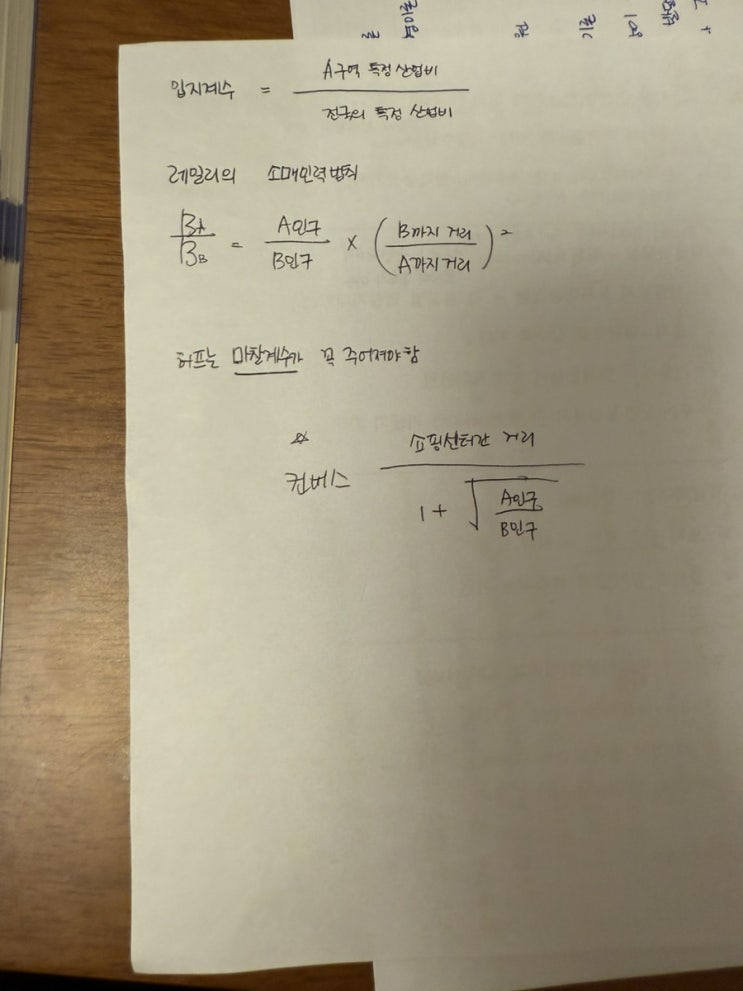 입지계수 = A구역 특정 산업비 / 전국의 특정 산업비
레일리의 소매인력법칙
B_A / B_B = A인구 / B인구 × (B까지 거리 / A까지 거리)²
허프는 마찰계수가 꼭 주어져야 함
☆ 컨버스 쇼핑센터간 거리 / 1 + √(A인구 / B인구)